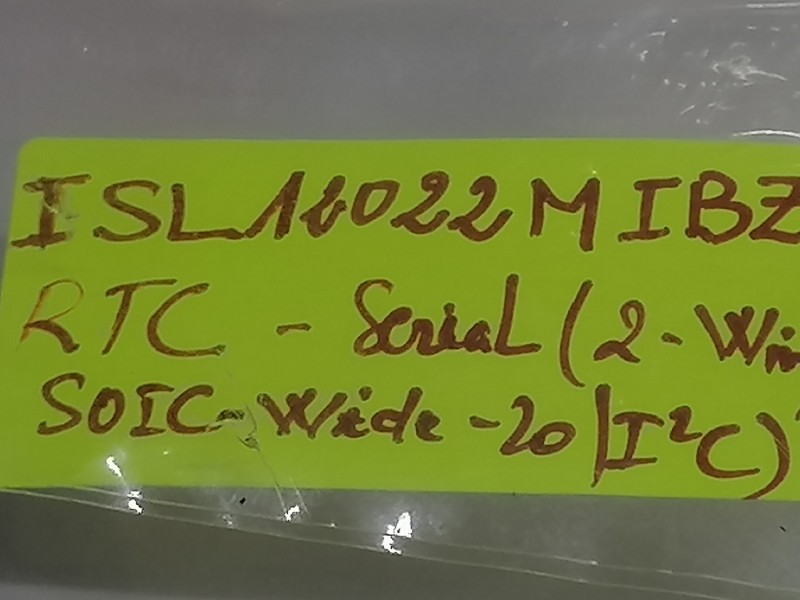 ISL12022MIBZ
RTC - Serial (2-Wir
SOIC-Wide-20 / I²C)